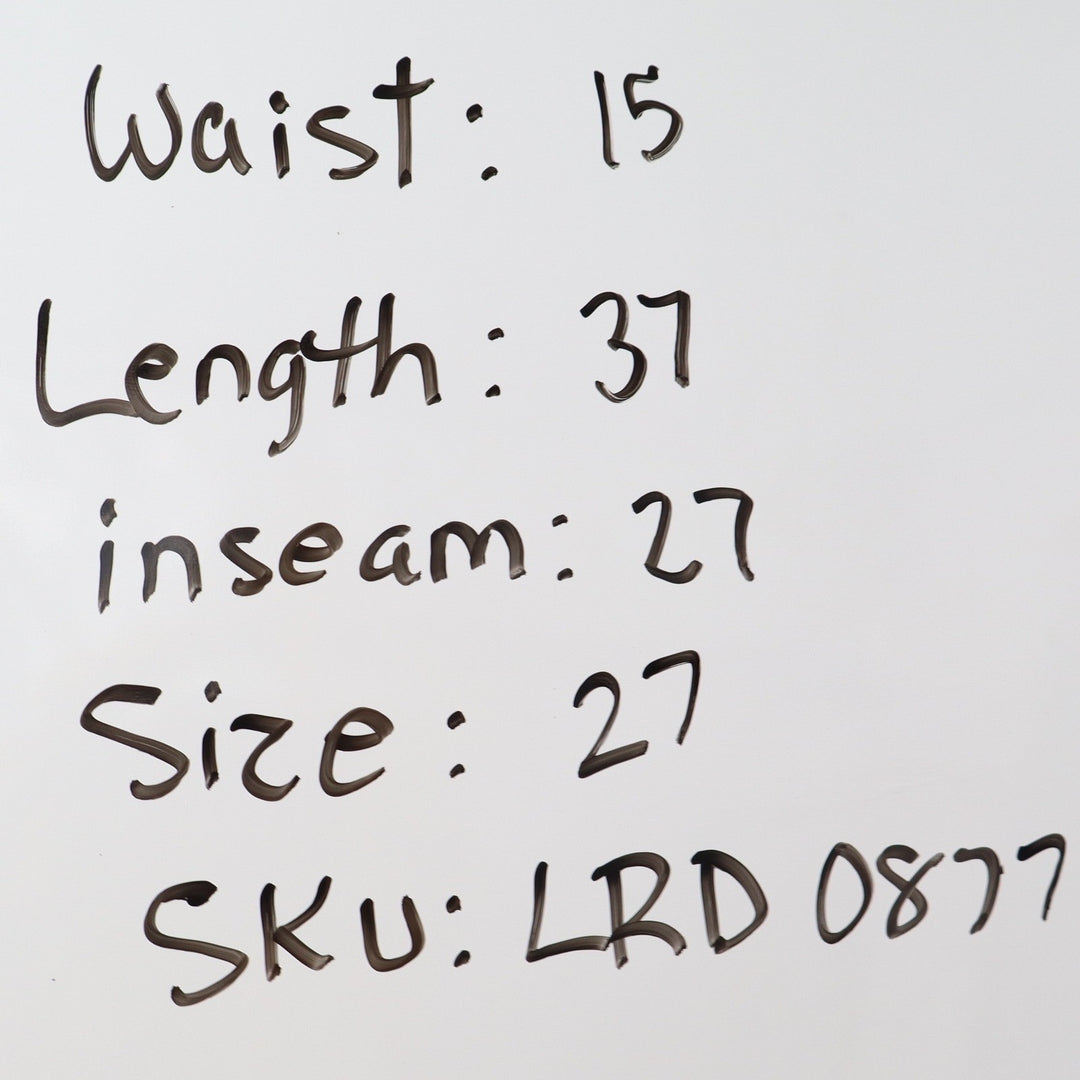 Waist: 15
Length: 37
inseam: 27
Size: 27
SKU: LRD 0877